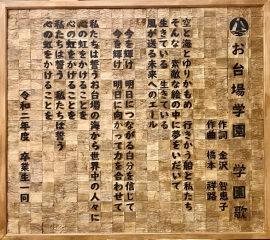 お台場学園 学園歌
作詞 金沢 智恵子
作曲 橋本 祥路
空と海とゆりかもめ 行きかう船と私たち
そんな 素敵な絵の中に夢をいだいて
生きている 生きている
風が送る未来へのエール
今を輝け 明日につながる自分を信じて
今を輝け 明日に向かって力を合わせて
私たちは誓うお台場の海から世界中の人々に
心の虹をかけることを
心の虹をかけることを
私たちは誓う 私たちは誓う
心の虹をかけることを
令和二年度 卒業生一同